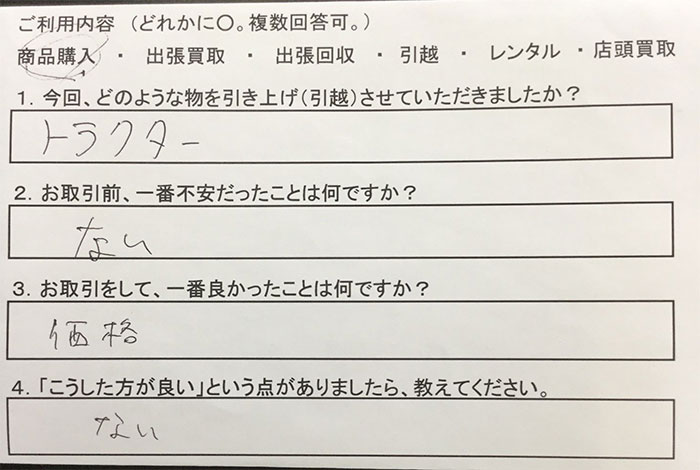 ご利用内容　（どれかに〇。複数回答可。）
商品購入　・　出張買取　・　出張回収　・　引越　・　レンタル　・　店頭買取
１．今回、どのような物を引き上げ（引越）させていただきましたか？
トラクター
２．お取引前、一番不安だったことは何ですか？
ない
３．お取引をして、一番良かったことは何ですか？
価格
４．「こうした方が良い」という点がありましたら、教えてください。
ない